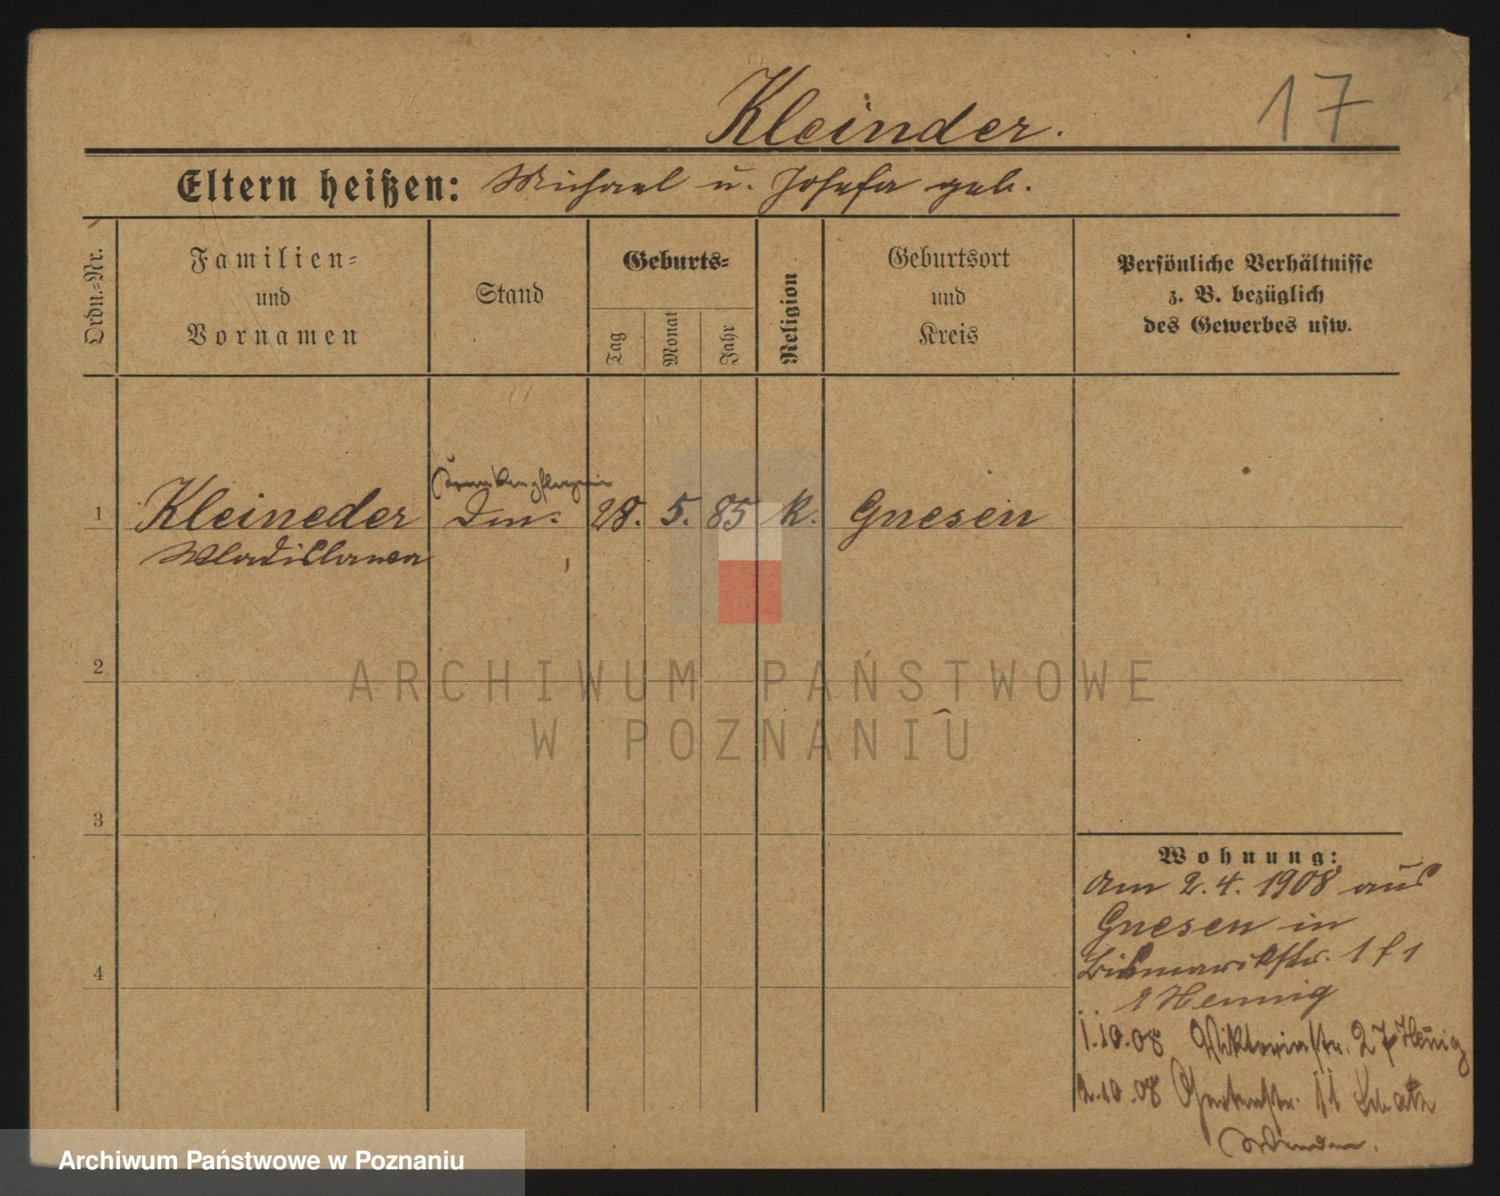 Kleinder.
17
Eltern heißen: Michael u. Josefa geb.
Ordn.-Nr.
Familien-
und
Vornamen
Stand
Geburts-
Tag
Monat
Jahr
Religion
Geburtsort
und
Kreis
Persönliche Verhältnisse
z. B. bezüglich
des Gewerbes usw.
Krankenpflegerin
1 Kleineder 28. 5. 85 k. Gnesen
Wladislawa
2
ARCHIWUM PAŃSTWOWE
W POZNANIU
3
Wohnung:
Am 2.4.1908 aus
Gnesen in
Bismarckstr. 1
Hennig
1.10.08 Viktoriastr. 27 Hennig
2.10.08 Gartenstr. 11
Wenden.
4
Archiwum Państwowe w Poznaniu